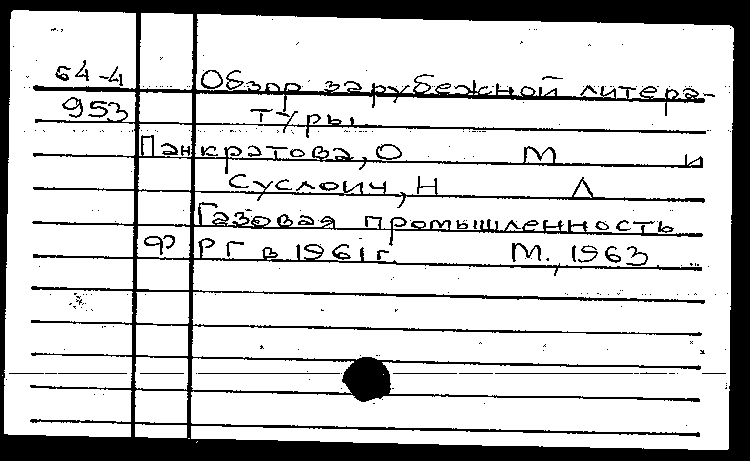 64-4 Обзор зарубежной литера-
953 туры.
Панкратова, О М и
Суслоич, Н Л
Газовая промышленность
ФРГ в 1961 г. М., 1963